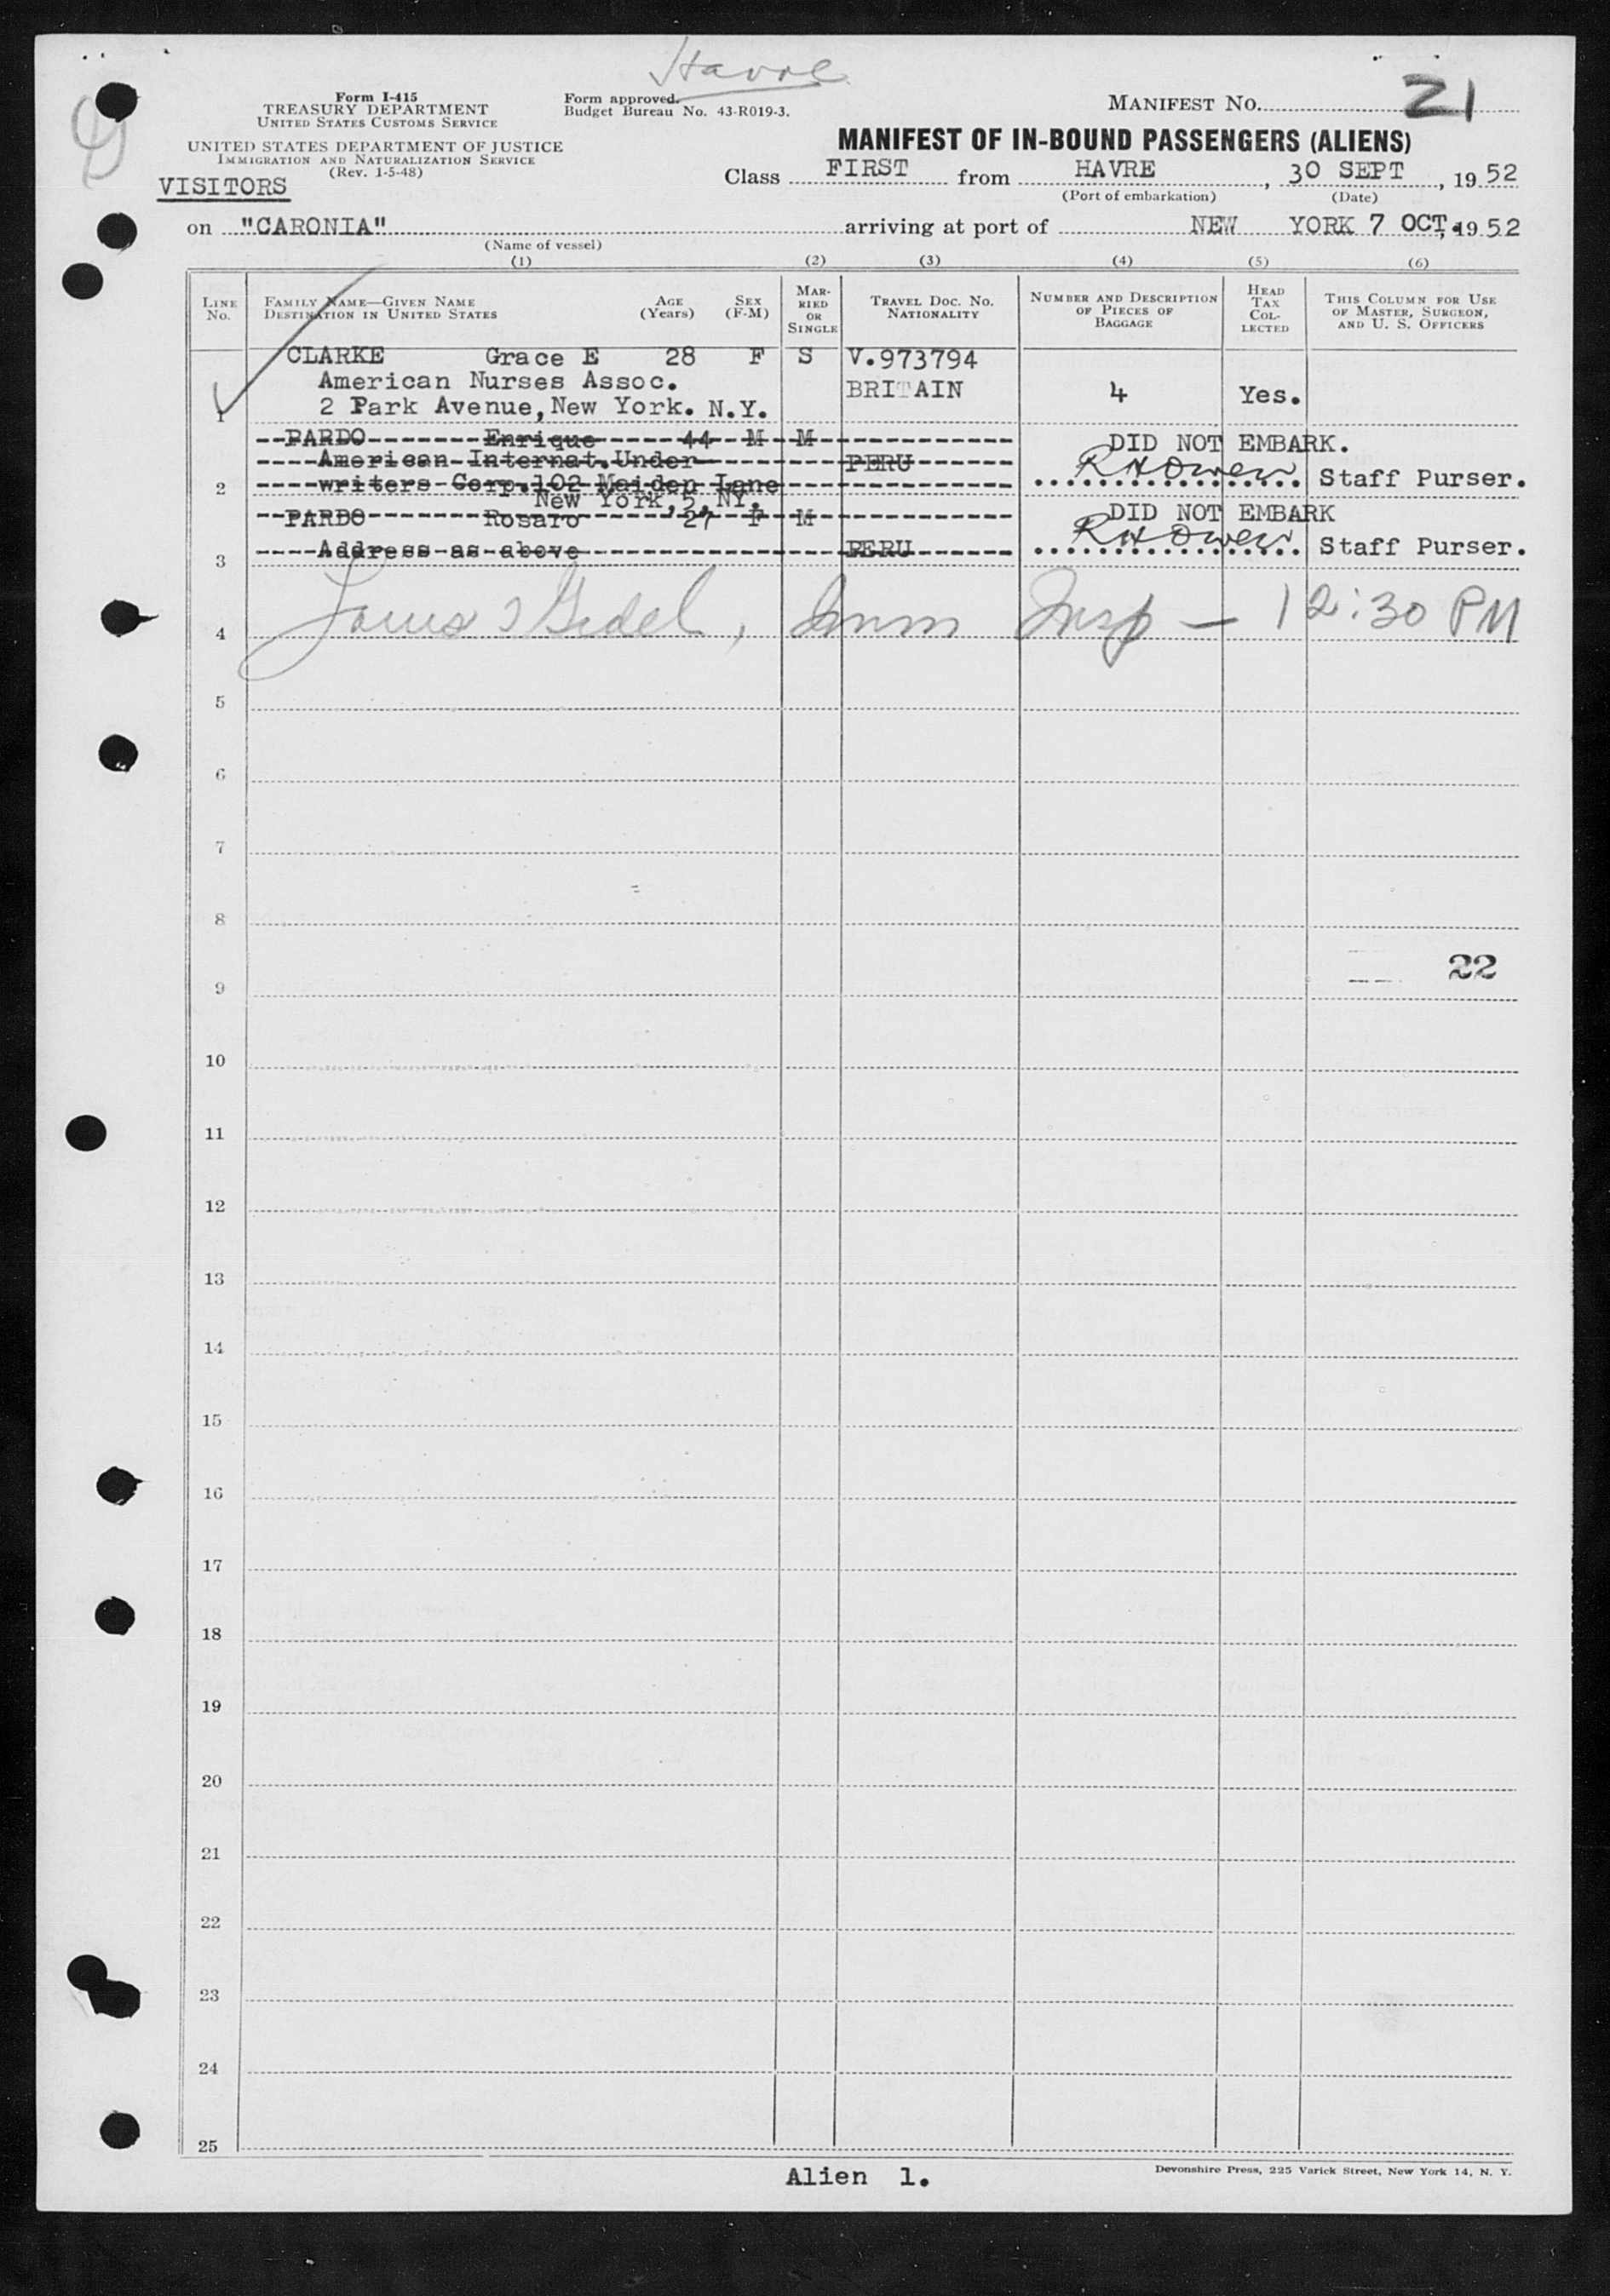 Havre
Form I-415
TREASURY DEPARTMENT
UNITED STATES CUSTOMS SERVICE
UNITED STATES DEPARTMENT OF JUSTICE
IMMIGRATION AND NATURALIZATION SERVICE
(Rev. 1-5-48)
VISITORS
Form approved.
Budget Bureau No. 43-R019-3.
MANIFEST NO. 21
MANIFEST OF IN-BOUND PASSENGERS (ALIENS)
Class FIRST from HAVRE, 30 SEPT, 1952
(Port of embarkation) (Date)
on "CARONIA" arriving at port of NEW YORK 7 OCT, 1952
(Name of vessel)
(1) (2) (3) (4) (5) (6)
LINE NO. FAMILY NAME—GIVEN NAME DESTINATION IN UNITED STATES AGE (Years) SEX (F-M) MARRIED OR SINGLE TRAVEL DOC. NO. NATIONALITY NUMBER AND DESCRIPTION OF PIECES OF BAGGAGE HEAD TAX COLLECTED THIS COLUMN FOR USE OF MASTER, SURGEON, AND U. S. OFFICERS
CLARKE Grace E 28 F S V.973794
American Nurses Assoc. BRITAIN 4 Yes.
1 2 Park Avenue, New York. N.Y.
PARDO Enrique 44 M M DID NOT EMBARK.
American Internat. Under PERU R H Owen Staff Purser.
2 writers Corp. 102 Maiden Lane
New York, 5, NY.
PARDO Rosaro 27 F M DID NOT EMBARK
3 Address as above PERU R H Owen Staff Purser.
4 Imm Insp — 12:30 PM
5
6
7
8
22
9
10
11
12
13
14
15
16
17
18
19
20
21
22
23
24
25
Alien 1.
Devonshire Press, 225 Varick Street, New York 14, N. Y.